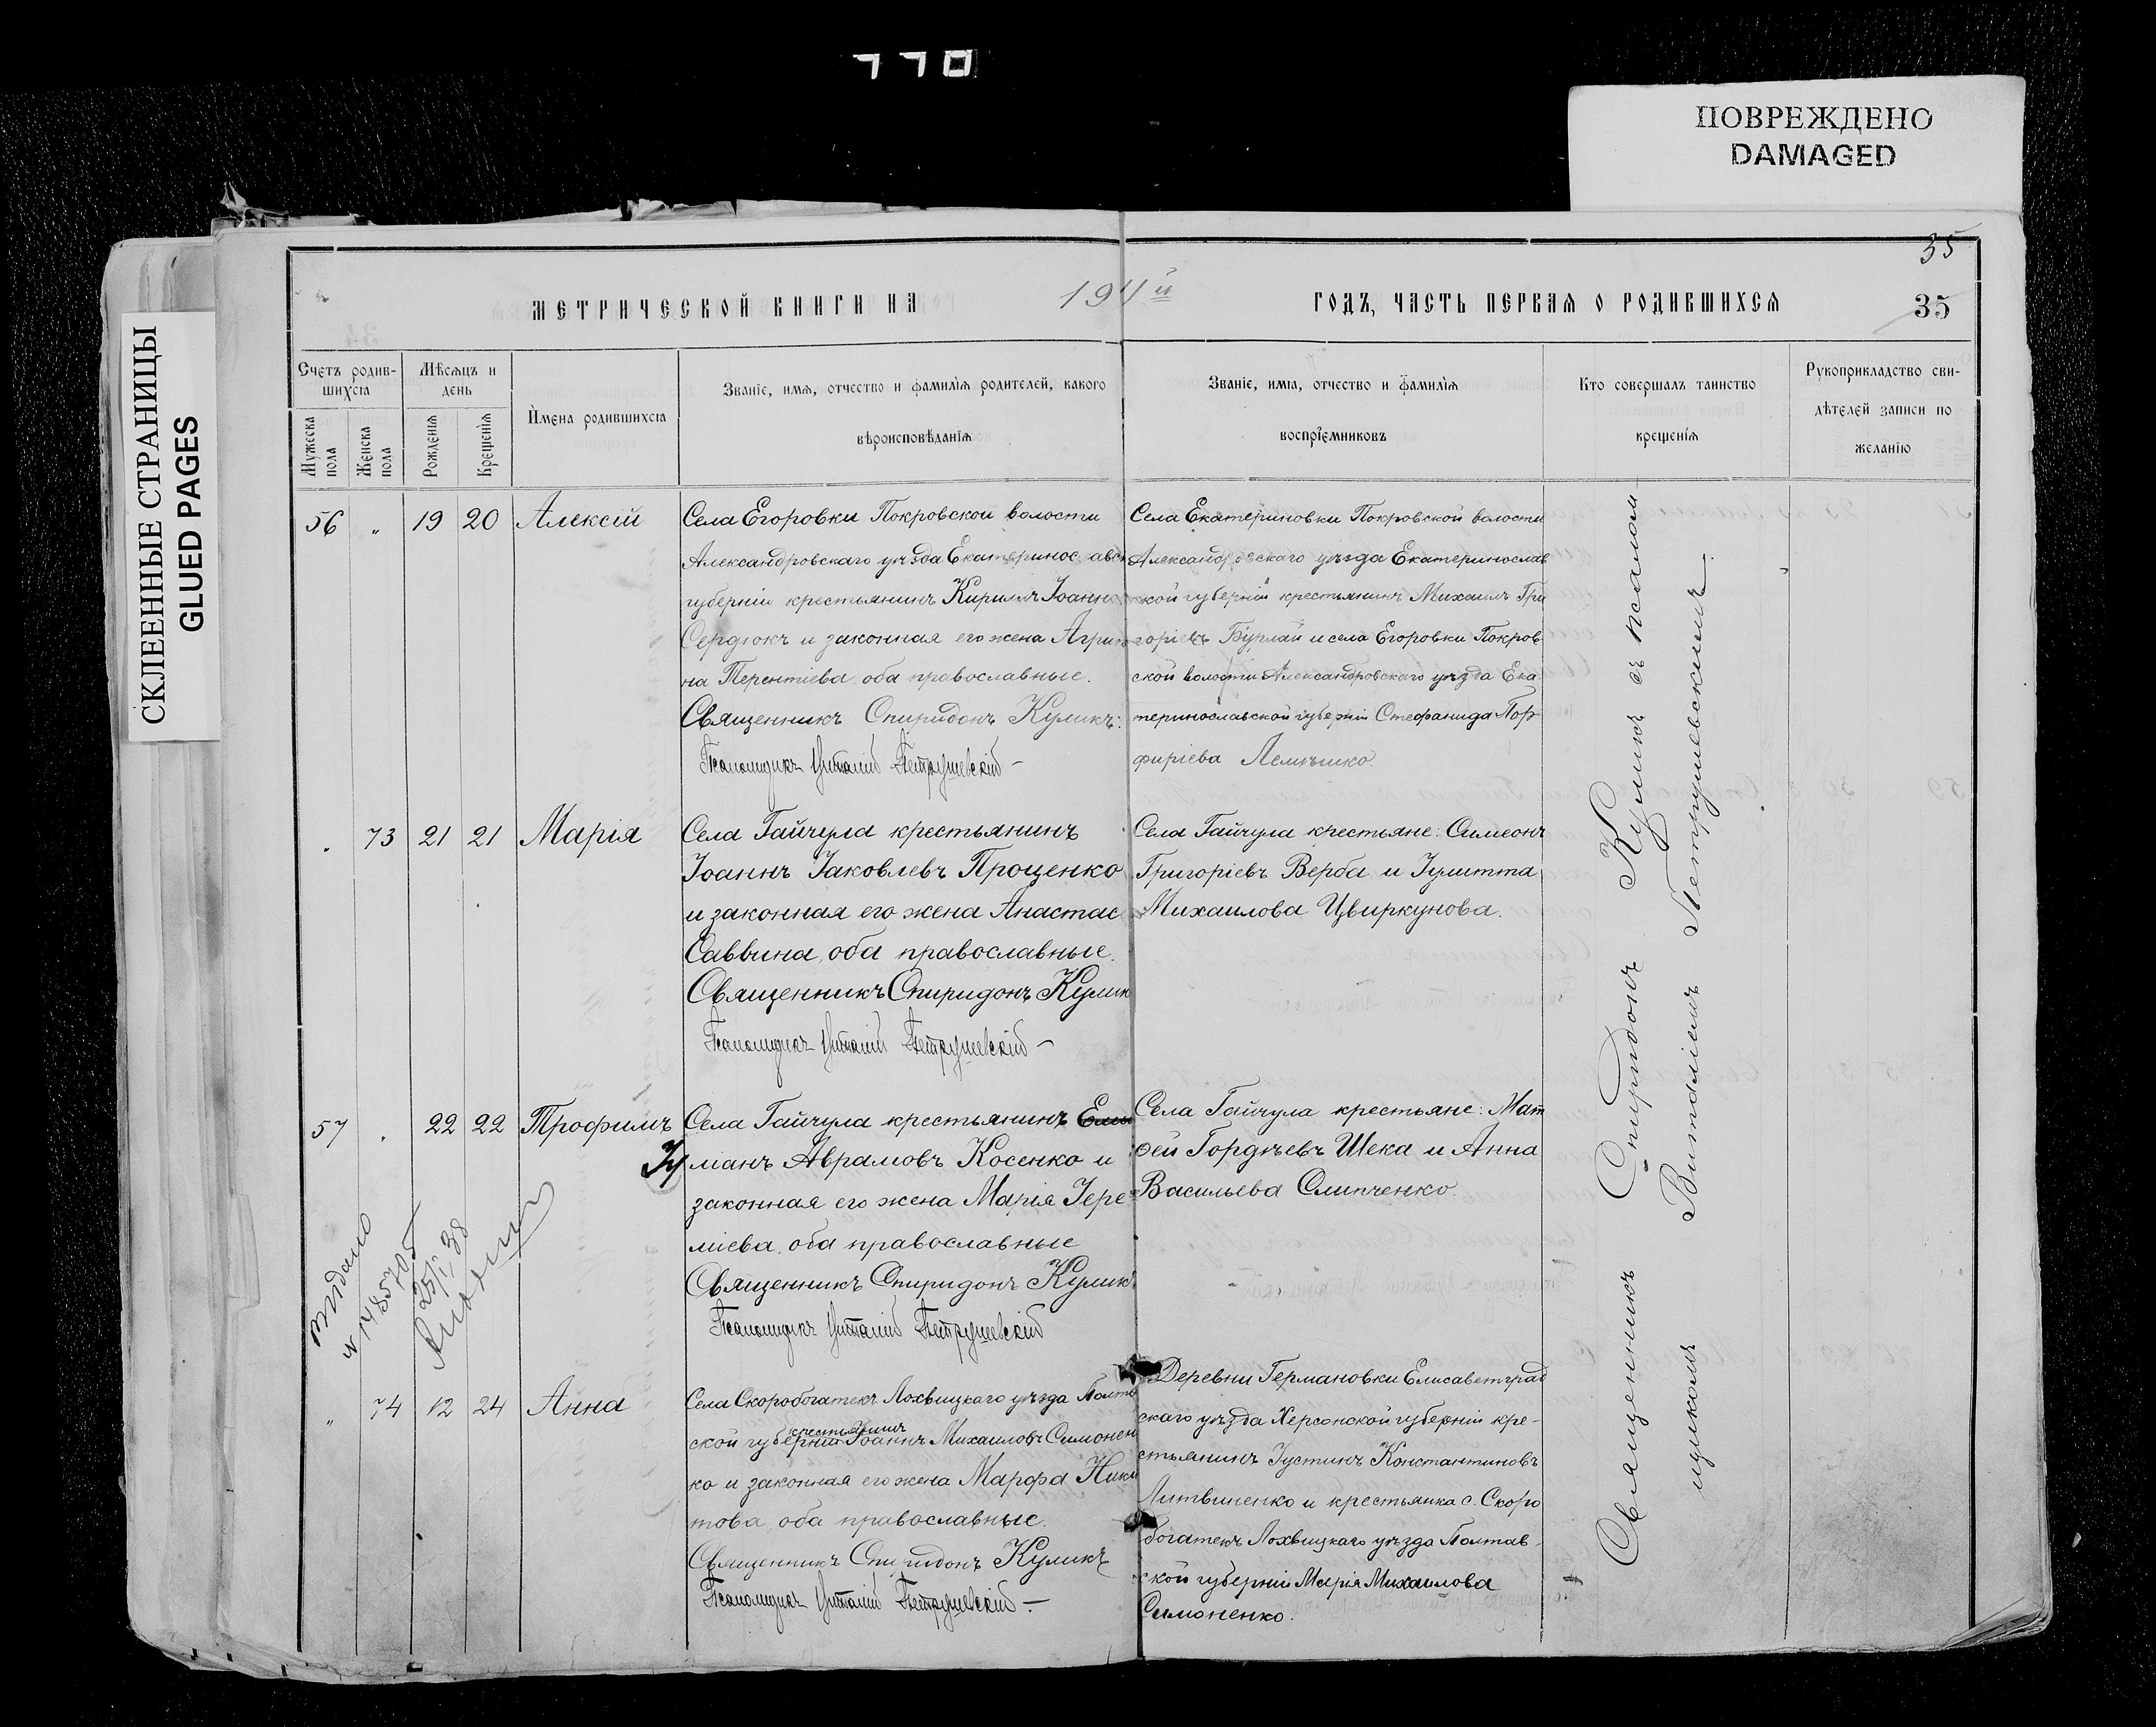 770
ПОВРЕЖДЕНО
DAMAGED
СКЛЕЕННЫЕ СТРАНИЦЫ
GLUED PAGES
35
МЕТРИЧЕСКОЙ КНИГИ НА 1911й ГОДЪ, ЧАСТЬ ПЕРВАЯ О РОДИВШИХСЯ
35
Счетъ родив-
шихся
Мужеска
пола
Женска
пола
Мѣсяцъ и
день
Рожденія
Крещенія
Имена родившихся
Званіе, имя, отчество и фамилія родителей, какого
вѣроисповѣданія
Званіе, имя, отчество и фамилія
воспріемниковъ
Кто совершалъ таинство
крещенія
Рукоприкладство сви-
дѣтелей записи по
желанію
56 " 19 20 Алексій
Села Егоровки Покровской волости
Александровскаго уѣзда Екатеринославс
губерніи крестьянинъ Кириллъ Іоанно
Сердюкъ и законная его жена Агрип
на Терентіева, оба православные.
Священникъ Спиридонъ Куликъ.
Псаломщикъ Виталій Петрушевскій
Села Екатериновки Покровской волости
Александровскаго уѣзда Екатеринослав
ской губерніи крестьянинъ Михаилъ Гри
горіевъ Бурлай и села Егоровки Покров
ской волости Александровскаго уѣзда Ека
теринославской губерніи Стефанида Пор
фиріева Лемѣшко.
" 73 21 21 Марія
Села Гайчула крестьянинъ
Іоаннъ Іаковлевъ Проценко
и законная его жена Анастас
Саввина, оба православные.
Священникъ Спиридонъ Кулик
Псаломщикъ Виталій Петрушевскій
Села Гайчула крестьяне: Симеонъ
Григоріевъ Верба и Іулитта
Михаилова Цвиркунова.
57 " 22 22 Трофимъ
Села Гайчула крестьянинъ
Іуліанъ Аврамовъ Косенко и
законная его жена Марія Іере
міева, оба православные
Священникъ Спиридонъ Куликъ
Псаломщикъ Виталій Петрушевскій
Села Гайчула крестьяне: Мат
ѳей Гордѣевъ Шека и Анна
Васильева Слипченко.
Видано
25/I 38
" 74 12 24 Анна
Села Скоробогатекъ Лохвицкаго уѣзда Полтав
крестьянинъ
ской губерніи Іоаннъ Михаиловъ Симонен
ко и законная его жена Марфа Ники
това, оба православные.
Священникъ Спиридонъ Куликъ
Псаломщикъ Виталій Петрушевскій
Деревни Германовки Елисаветград
скаго уѣзда Херсонской губерніи кре-
стьянинъ Іустинъ Константиновъ
Литвиненко и крестьянка с. Скоро
богатекъ Лохвицкаго уѣзда Полтав-
ской губерніи Марія Михаилова
Симоненко.
Священникъ Спиридонъ Куликъ съ псалом
щикомъ Виталіемъ Петрушевскимъ.